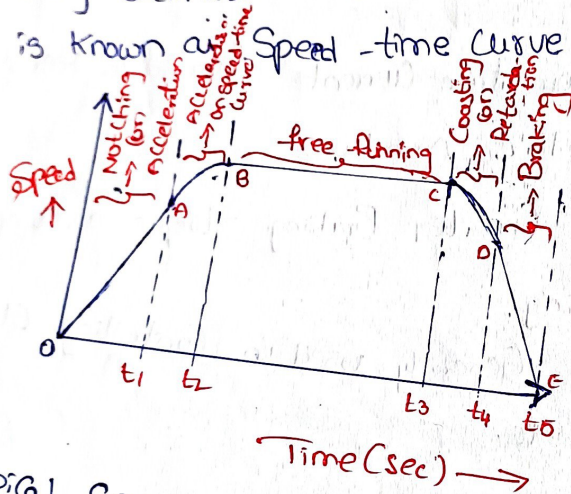 is known as Speed-time curve
Speed
Notching
(or)
Acceleration
Acceleration
on speed-time
curve
free running
Coasting
(or)
Retarda-
tion
Braking
A
B
C
D
E
O
t1
t2
t3
t4
t5
Time (sec)